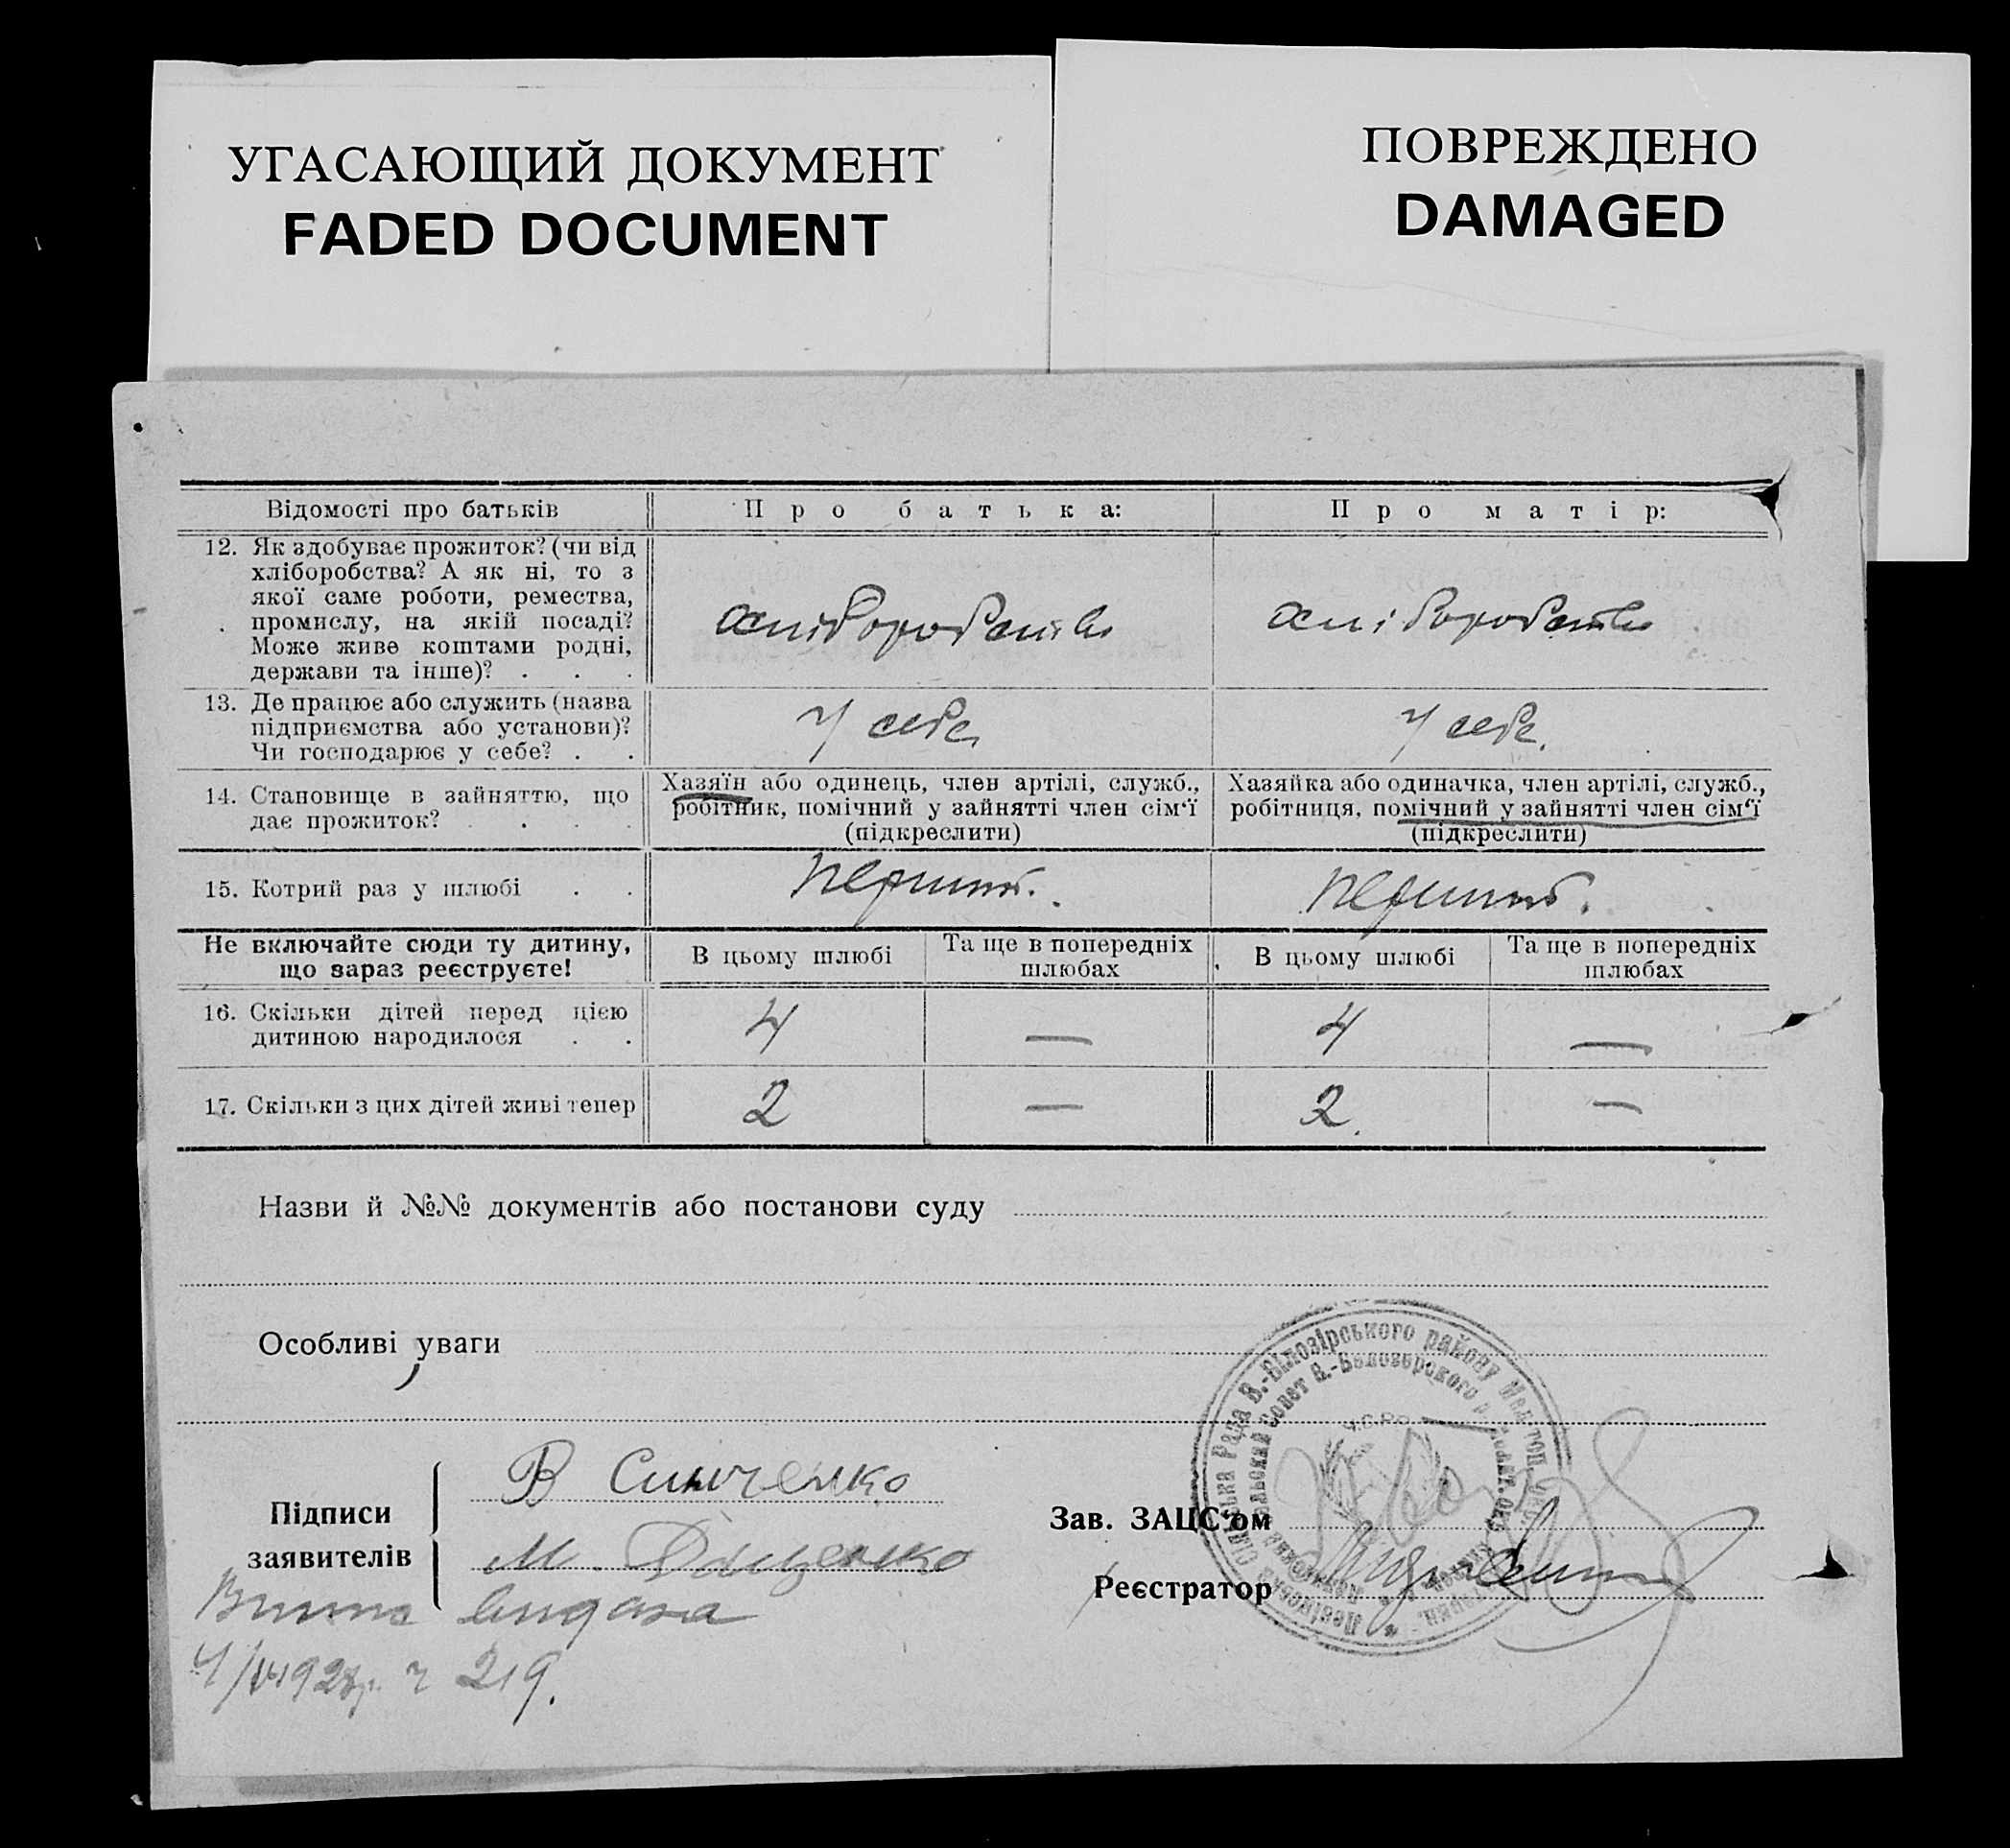 УГАСАЮЩИЙ ДОКУМЕНТ
FADED DOCUMENT
ПОВРЕЖДЕНО
DAMAGED
Відомості про батьків
Про батька:
Про матір:
12. Як здобуває прожиток? (чи від
хліборобства? А як ні, то з
якої саме роботи, ремества,
промислу, на якій посаді?
Може живе коштами родні,
держави та інше)? . . .
хліборобство
хліборобство
13. Де працює або служить (назва
підприємства або установи)?
Чи господарює у себе? . .
У себе
У себе.
14. Становище в зайняттю, що
дає прожиток? . . . .
Хазяїн або одинець, член артілі, служб.,
робітник, помічний у зайнятті член сім‘ї
(підкреслити)
Хазяйка або одиначка, член артілі, служб.,
робітниця, помічний у зайнятті член сім‘ї
(підкреслити)
15. Котрий раз у шлюбі . .
Перший.
Перший.
Не включайте сюди ту дитину,
що зараз реєструєте!
В цьому шлюбі
Та ще в попередніх
шлюбах
В цьому шлюбі
Та ще в попередніх
шлюбах
16. Скільки дітей перед цією
дитиною народилося . .
4
—
4
—
17. Скільки з цих дітей живі тепер
2
—
2.
—
Назви й №№ документів або постанови суду
Особливі уваги
Підписи
заявителів
В Синченко
М.
Зав. ЗАЦС‘ом
Реєстратор
Сільська Рада В.-Білозірського району
Совет В.-Белозерского
видана
219.